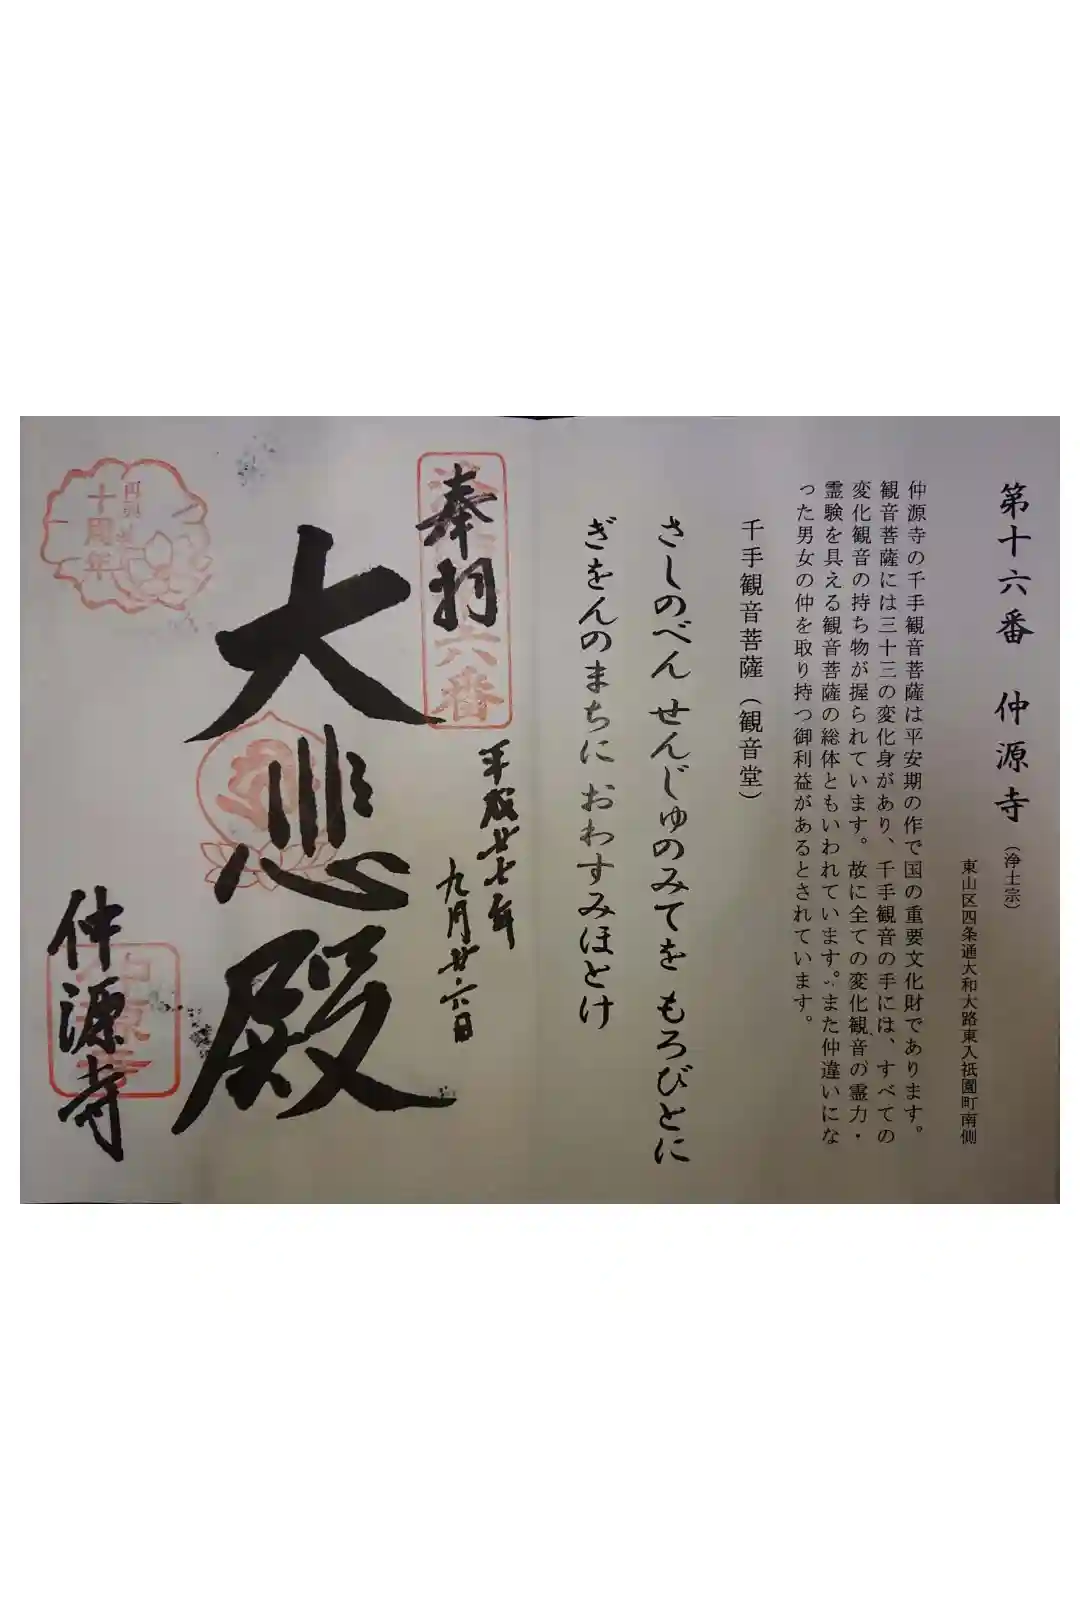 第十六番 仲源寺(浄土宗)
東山区四条通大和大路東入祇園町南側
仲源寺の千手観音菩薩は平安期の作で国の重要文化財であります。
観音菩薩には三十三の変化身があり、千手観音の手には、すべての
変化観音の持ち物が握られています。故に全ての変化観音の霊力・
霊験を具える観音菩薩の総体ともいわれています。また仲違いにな
った男女の仲を取り持つ御利益があるとされています。
千手観音菩薩(観音堂)
さしのべん せんじゅのみてを もろびとに
ぎをんのまちに おわすみほとけ
奉拝
六番
平成廿七年
九月廿六日
大悲殿
仲源寺
十周年